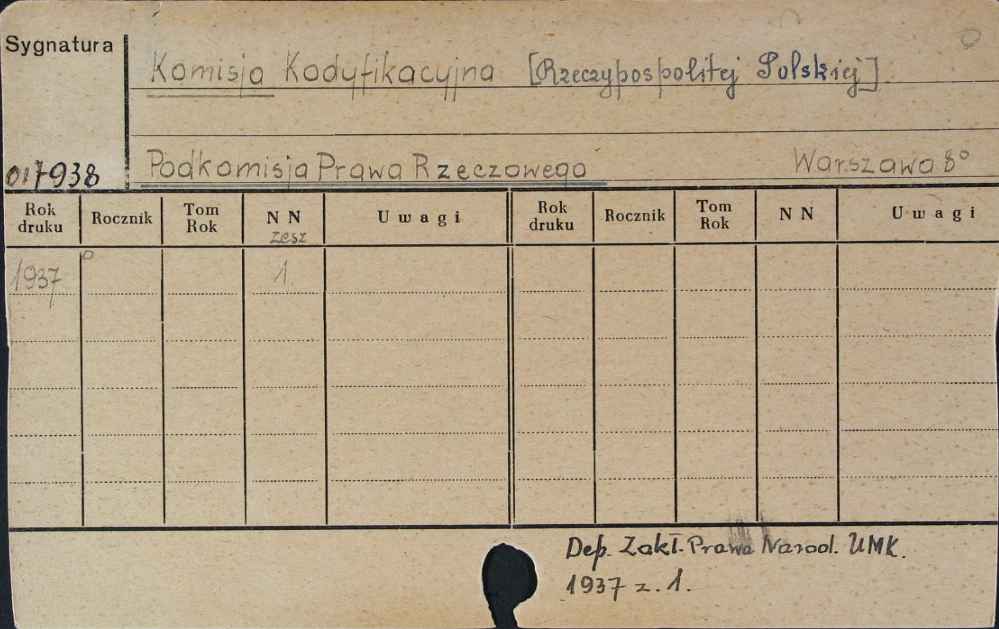 Sygnatura
Komisja Kodyfikacyjna [Rzeczypospolitej Polskiej]
017938
Podkomisja Prawa Rzeczowego Warszawa 8°
Rok druku Rocznik Tom Rok NN zesz Uwagi Rok druku Rocznik Tom Rok NN Uwagi
1937 1.
Dep. Zakł. Prawa Narod. UMK.
1937 z. 1.